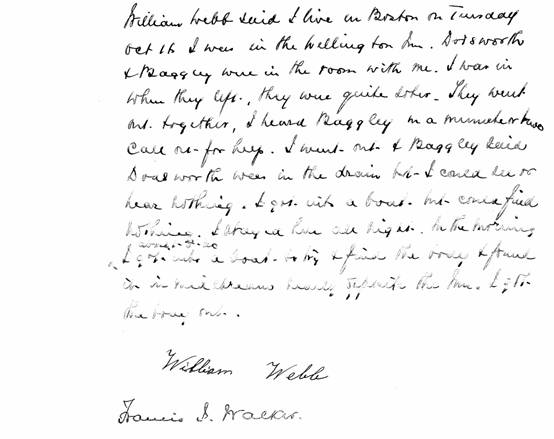 William Webb said I live in Boston on Tuesday
Oct 16 I was in the Wellington Inn. Dodsworth
& Baggley were in the room with me. I was in
when they left, they were quite sober. They went
out together, I heard Baggley in a minute or two
call out for help. I went out & Baggley said
Dodsworth was in the drain but I could see or
hear nothing. I got into a boat but could find
nothing. I stayed there all night. In the morning
about
I got into a boat to try & find the body & found
it in mid stream nearly opposite the Inn. I got
the body out.
William Webb
Francis J. Walker.